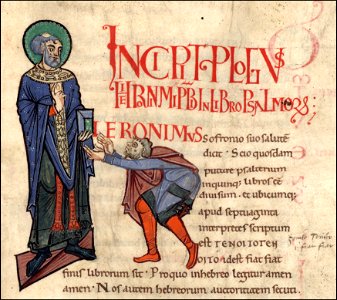 INCIPT PLOGVS
PBI IN LIBRO PSALMOR
IERONIMUS Sofronio suo salutē
dicit · Scio quosdam
putare psalterium
inquinq; libros eē
divisum · ut ubicumq;
apud septuaginta
interpretes scriptum
est ΓЄΝΟΙΟΓЄΗ
ΟΙΤΟ idest fiat fiat
finis librorum sit · Pro quo inhebreo legitur amen
amen · Nos autem hebreorum auctoritatem secuti·
fiat fiat